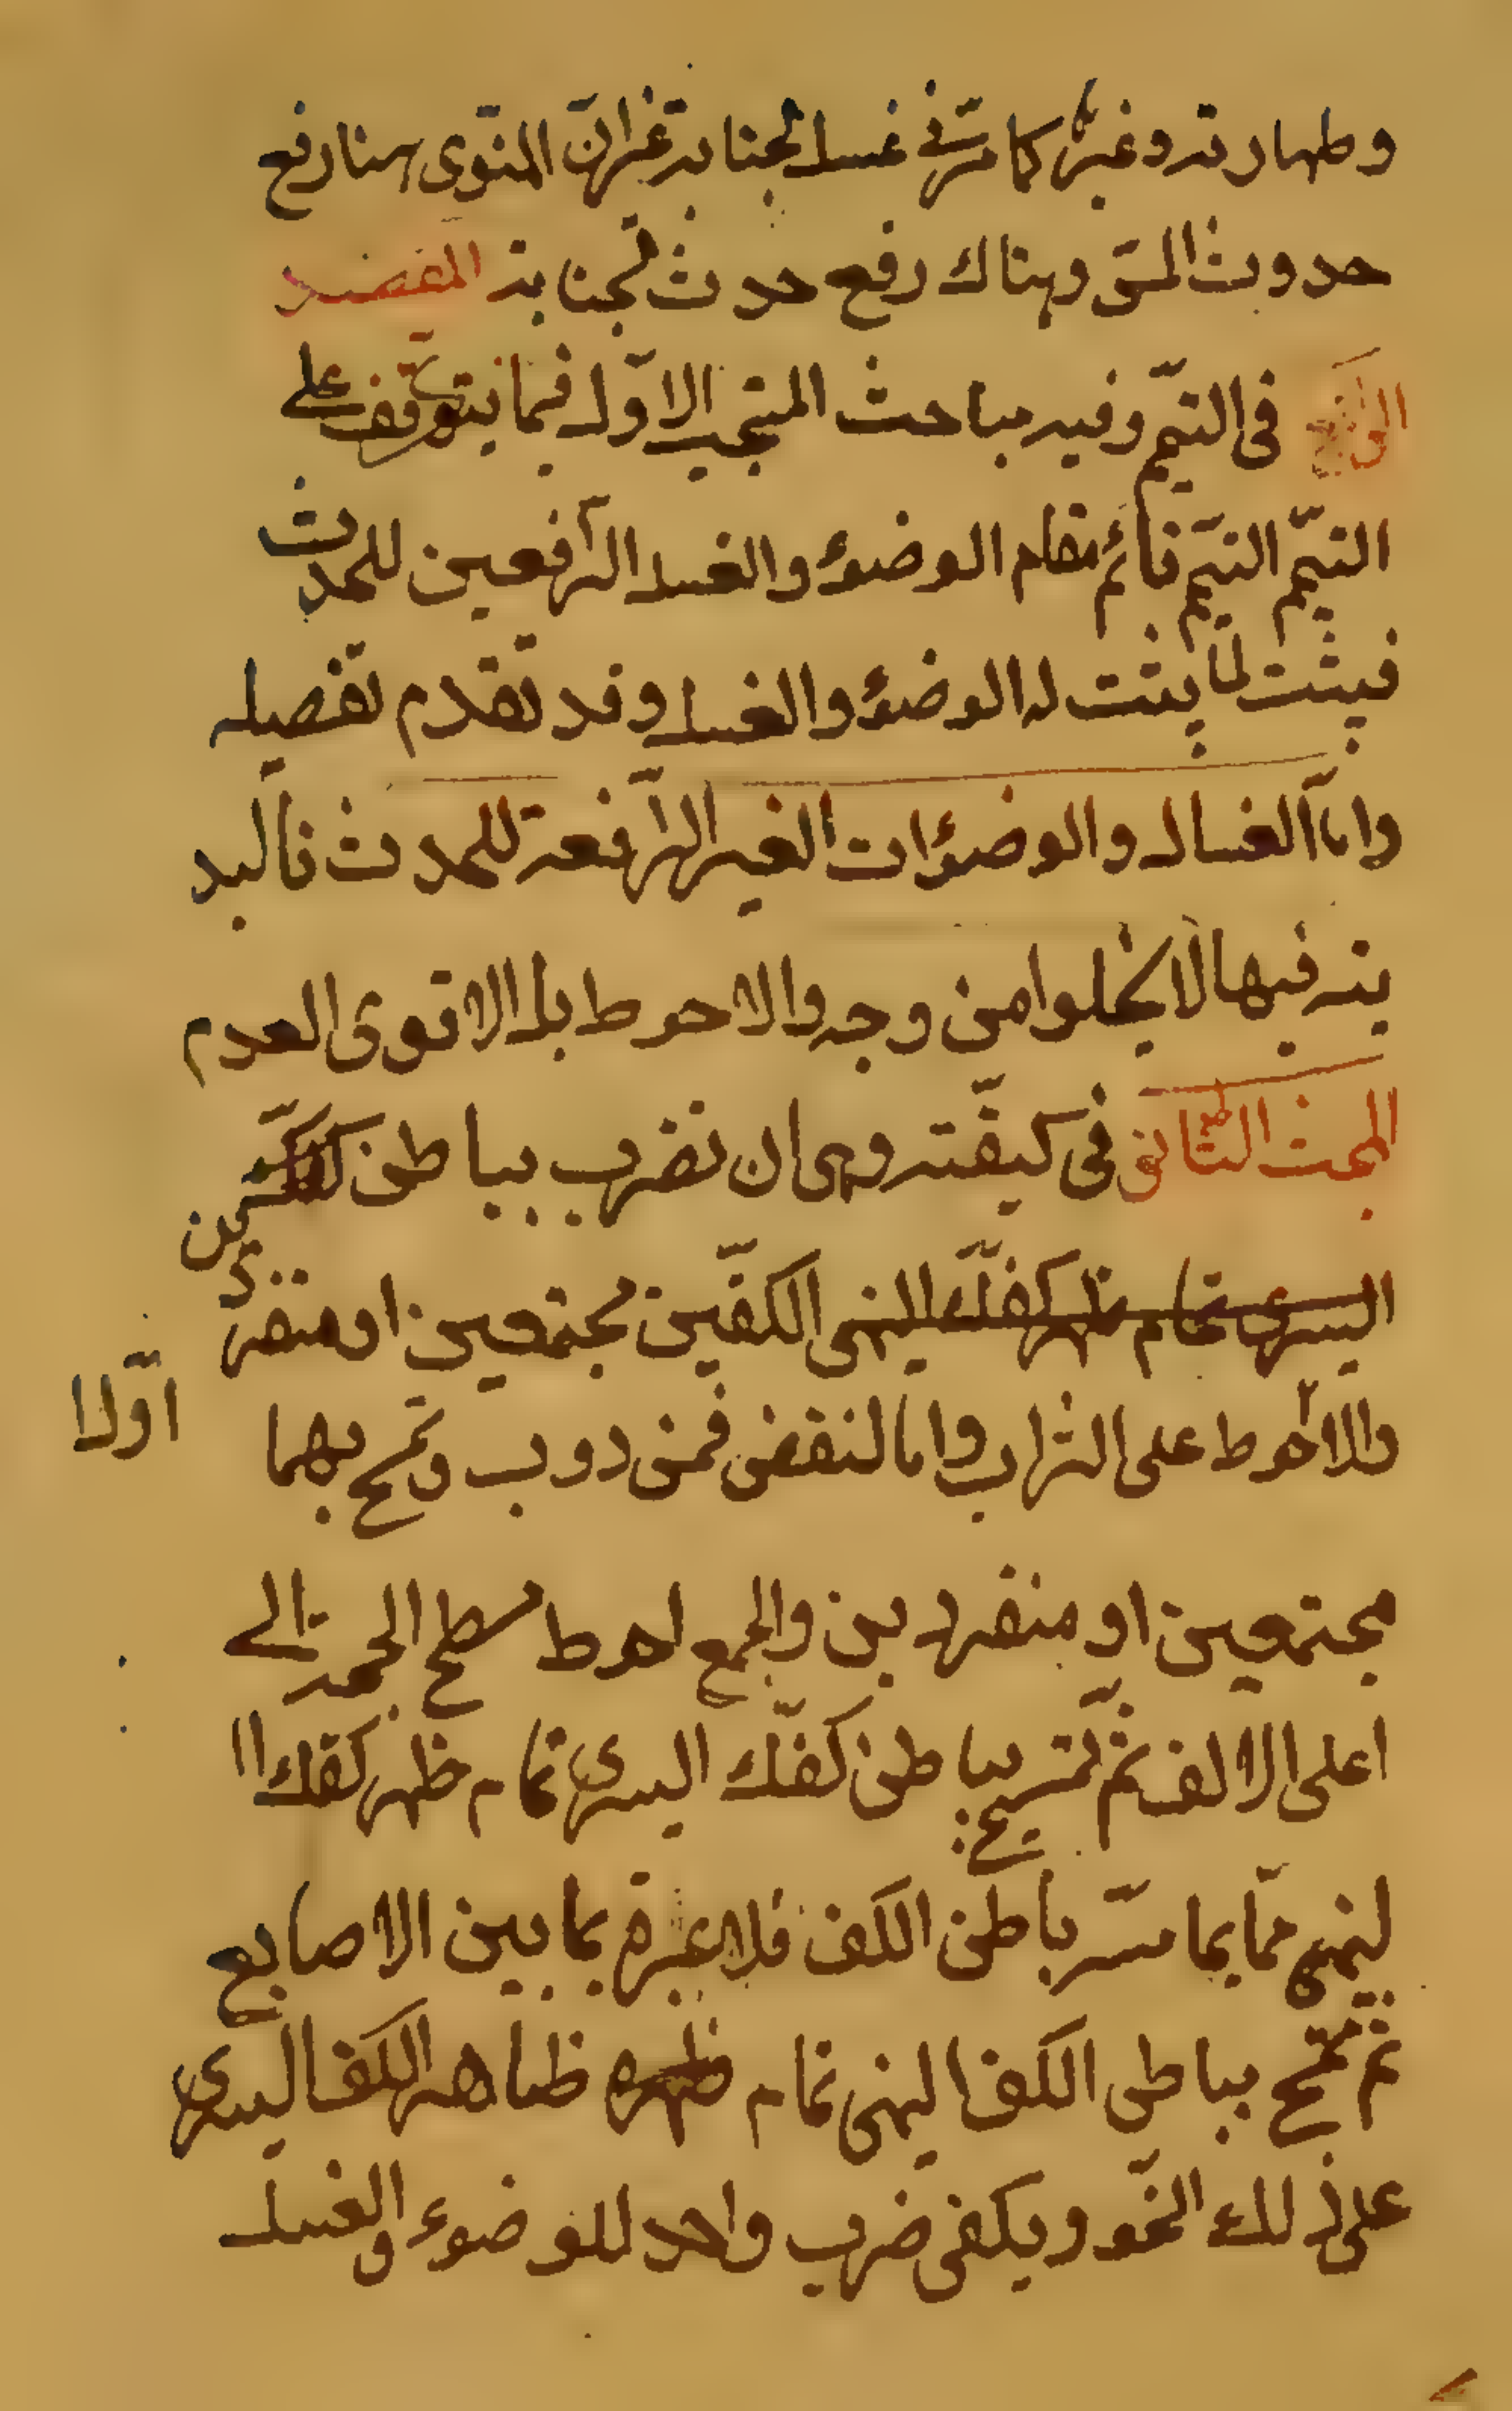 وطهارته وغيرها كما مرّ في غسل الجنابة غير انّ المنوّى هنا رفع
حدوث المسّ وهناك رفع حدوث الجنابة المقصد
الرابع في التيمّم وفيه مباحث المبحث الاوّل فيما يتوقّف على
التيمّم التيمّم قائم مقام الوضوء والغسل الرّافعين للحدث
فيثبت لما يثبت له الوضوء والغسل وقد تقدم تفصيله
وامّا الغسال والوضوءات الغير الرّافعة للحدث فالبد
ية فيها لا يخلوا من وجه والاحوط بل الاقوى العدم
المبحث الثّاني في كيفيّته وهي ان تضرب بباطن كفّك
اليسرى تمام ظهر كفّك اليمنى الكفّين مجتمعين او منفردين
والاحوط على التراب واما النقض فمندوب وتمسح بهما
اوّلا
مجتمعين او منفردين والجمع احوط سطح الجبهة الى
اعلى الالف ثمّ تمسح بباطن كفّك اليسرى تمام ظهر كفّك ا
ليمنى ممّا يماسّه باطن الكف فلا عبرة بما بين الاصابع
ثم تمسح بباطن الكف اليمنى تمام ظهره ظاهر الكف اليسرى
على ذلك النّحو ويكفى ضرب واحد للوضوء والغسل